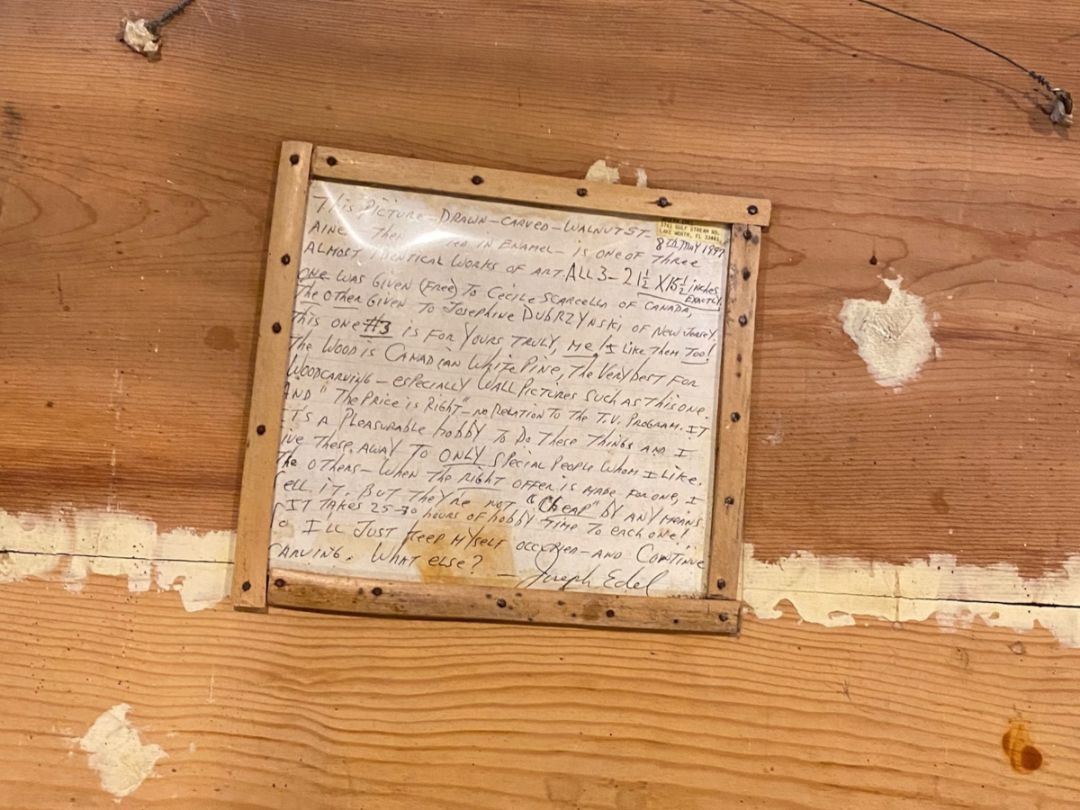 THIS PICTURE - DRAWN - CARVED - WALNUT ST-
3761 GULF STREAM RD.
LAKE WORTH, FL 33461
8th MAY 1997
AINED THEN IN ENAMEL - IS ONE OF THREE
ALMOST IDENTICAL WORKS OF ART. ALL 3 - 21 1/2 X 15 1/2 inches
EXACTLY.
ONE WAS GIVEN (FREE) TO CECILE SCARCELLA OF CANADA,
THE OTHER GIVEN TO JOSEPHINE DUBRZYNSKI OF NEW JERSEY.
THIS ONE #3 IS FOR YOURS TRULY, ME! I LIKE THEM TOO!
THE WOOD IS CANADIAN WHITE PINE, THE VERY BEST FOR
WOODCARVING - ESPECIALLY WALL PICTURES SUCH AS THIS ONE.
AND "THE PRICE IS RIGHT" - NO RELATION TO THE T.V. PROGRAM. IT
IT'S A PLEASURABLE HOBBY TO DO THESE THINGS AND I
IVE THESE AWAY TO ONLY SPECIAL PEOPLE WHOM I LIKE.
THE OTHERS - WHEN THE RIGHT OFFER IS MADE FOR ONE, I
SELL IT. BUT THEY'RE NOT "CHEAP" BY ANY MEANS.
IT TAKES 25-30 HOURS OF HOBBY TIME TO EACH ONE!
SO I'LL JUST KEEP MYSELF OCCUPIED - AND CONTINUE
CARVING. WHAT ELSE? - Joseph Edel